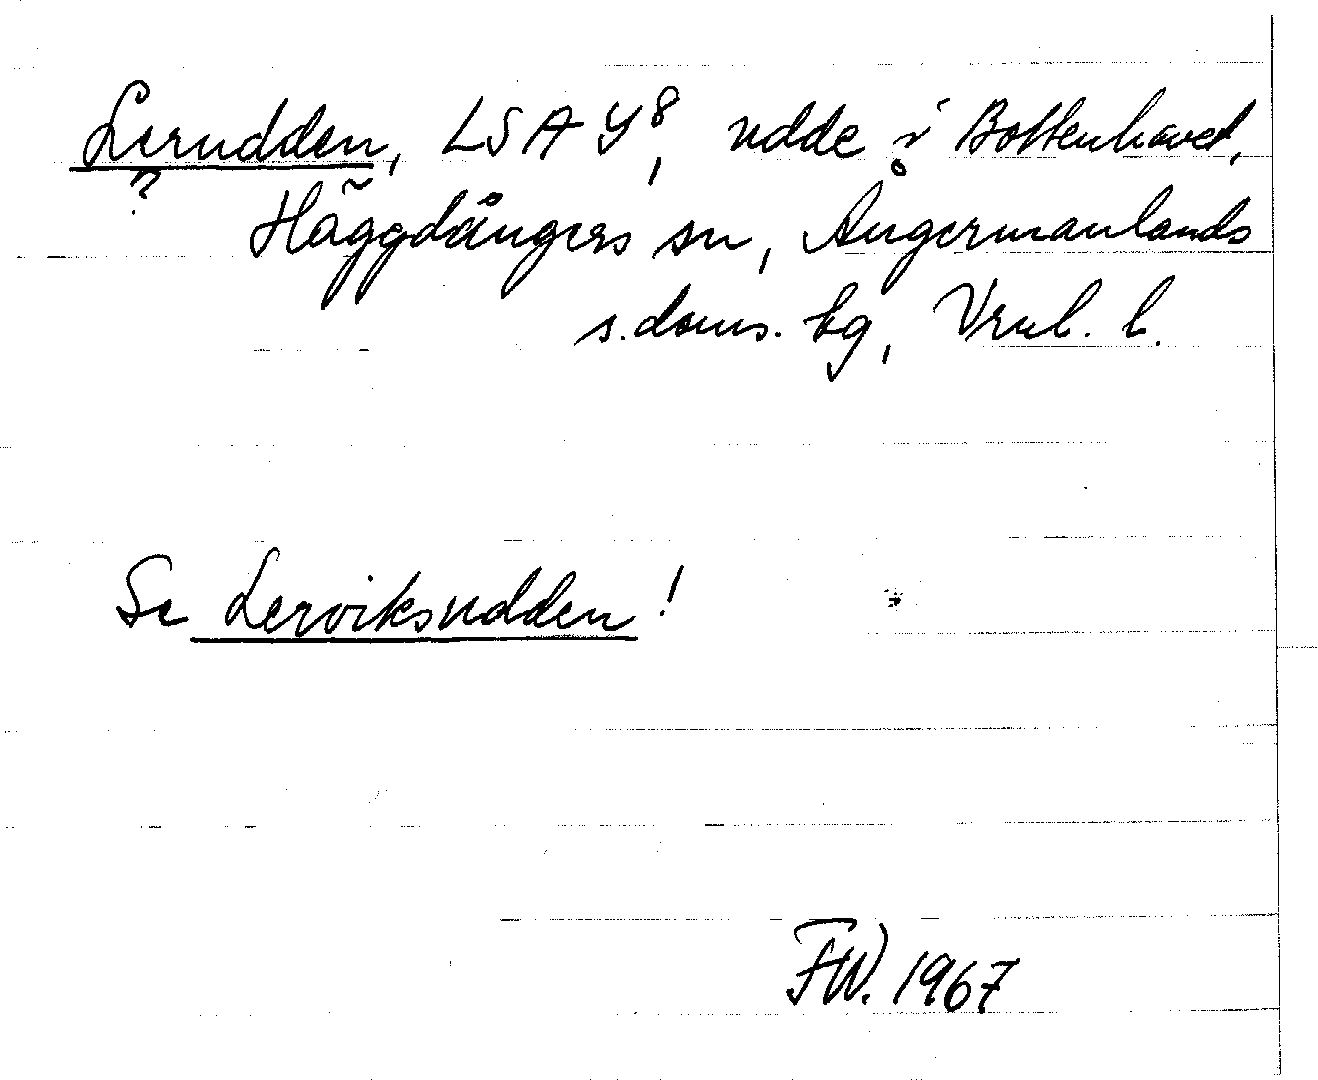 Lerudden, LSA Y8, udde i Bottenhavet,
?
Häggdångers sn, Ångermanlands
s. doms. hg, Vrnl. l.
Se Lerviksudden!
FW. 1967